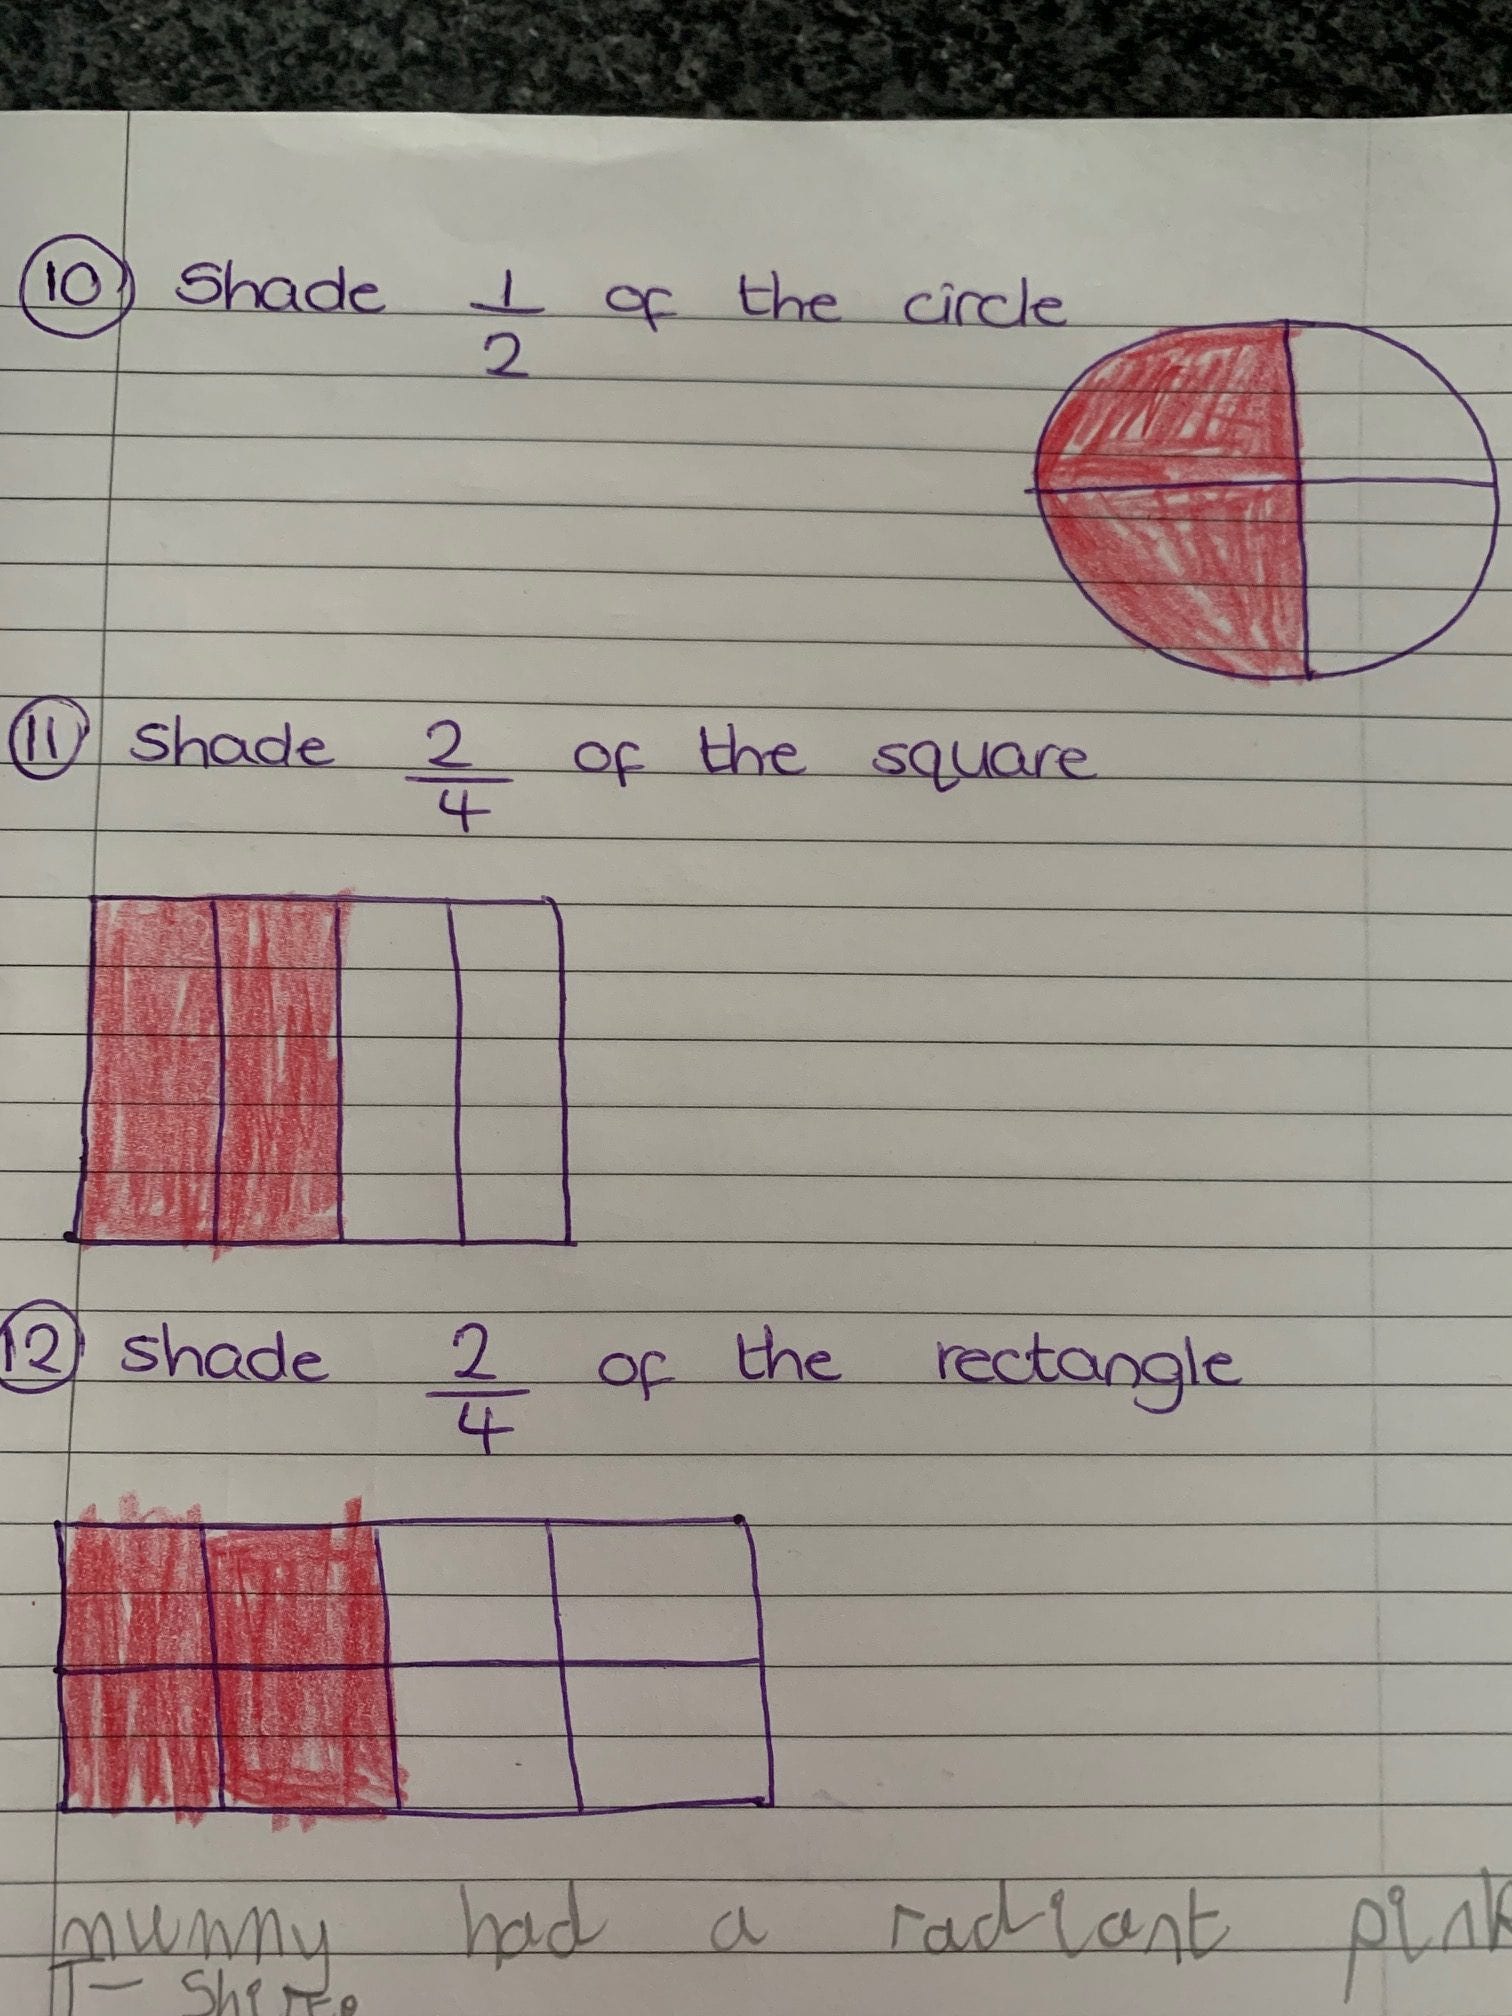 10 Shade 1/2 of the circle
11 Shade 2/4 of the square
12 Shade 2/4 of the rectangle
mummy had a radiant pink
T-Shirt.